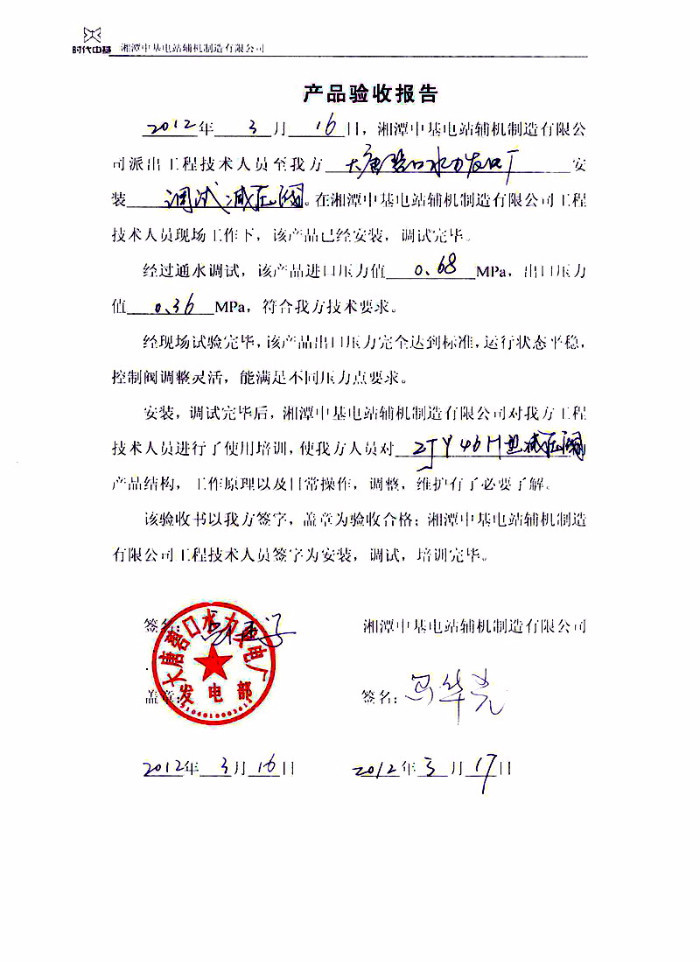 时代中基 湘潭中基电站辅机制造有限公司
产品验收报告
2012年 3 月 16 日，湘潭中基电站辅机制造有限公
司派出工程技术人员至我方 大唐碧口水力发电厂 安
装 调试减压阀。在湘潭中基电站辅机制造有限公司工程
技术人员现场工作下，该产品已经安装，调试完毕。
经过通水调试，该产品进口压力值 0.68 MPa，出口压力
值 0.36 MPa，符合我方技术要求。
经现场试验完毕，该产品出口压力完全达到标准，运行状态平稳，
控制阀调整灵活，能满足不同压力点要求。
安装，调试完毕后，湘潭中基电站辅机制造有限公司对我方工程
技术人员进行了使用培训，使我方人员对 ZJY46H型减压阀
产品结构，工作原理以及日常操作，调整，维护有了必要了解。
该验收书以我方签字，盖章为验收合格；湘潭中基电站辅机制造
有限公司工程技术人员签字为安装，调试，培训完毕。
签名：
湘潭中基电站辅机制造有限公司
大唐碧口水力发电厂
发电部
盖章：
签名：
2012年 3月 16日
2012年 3 月 17日